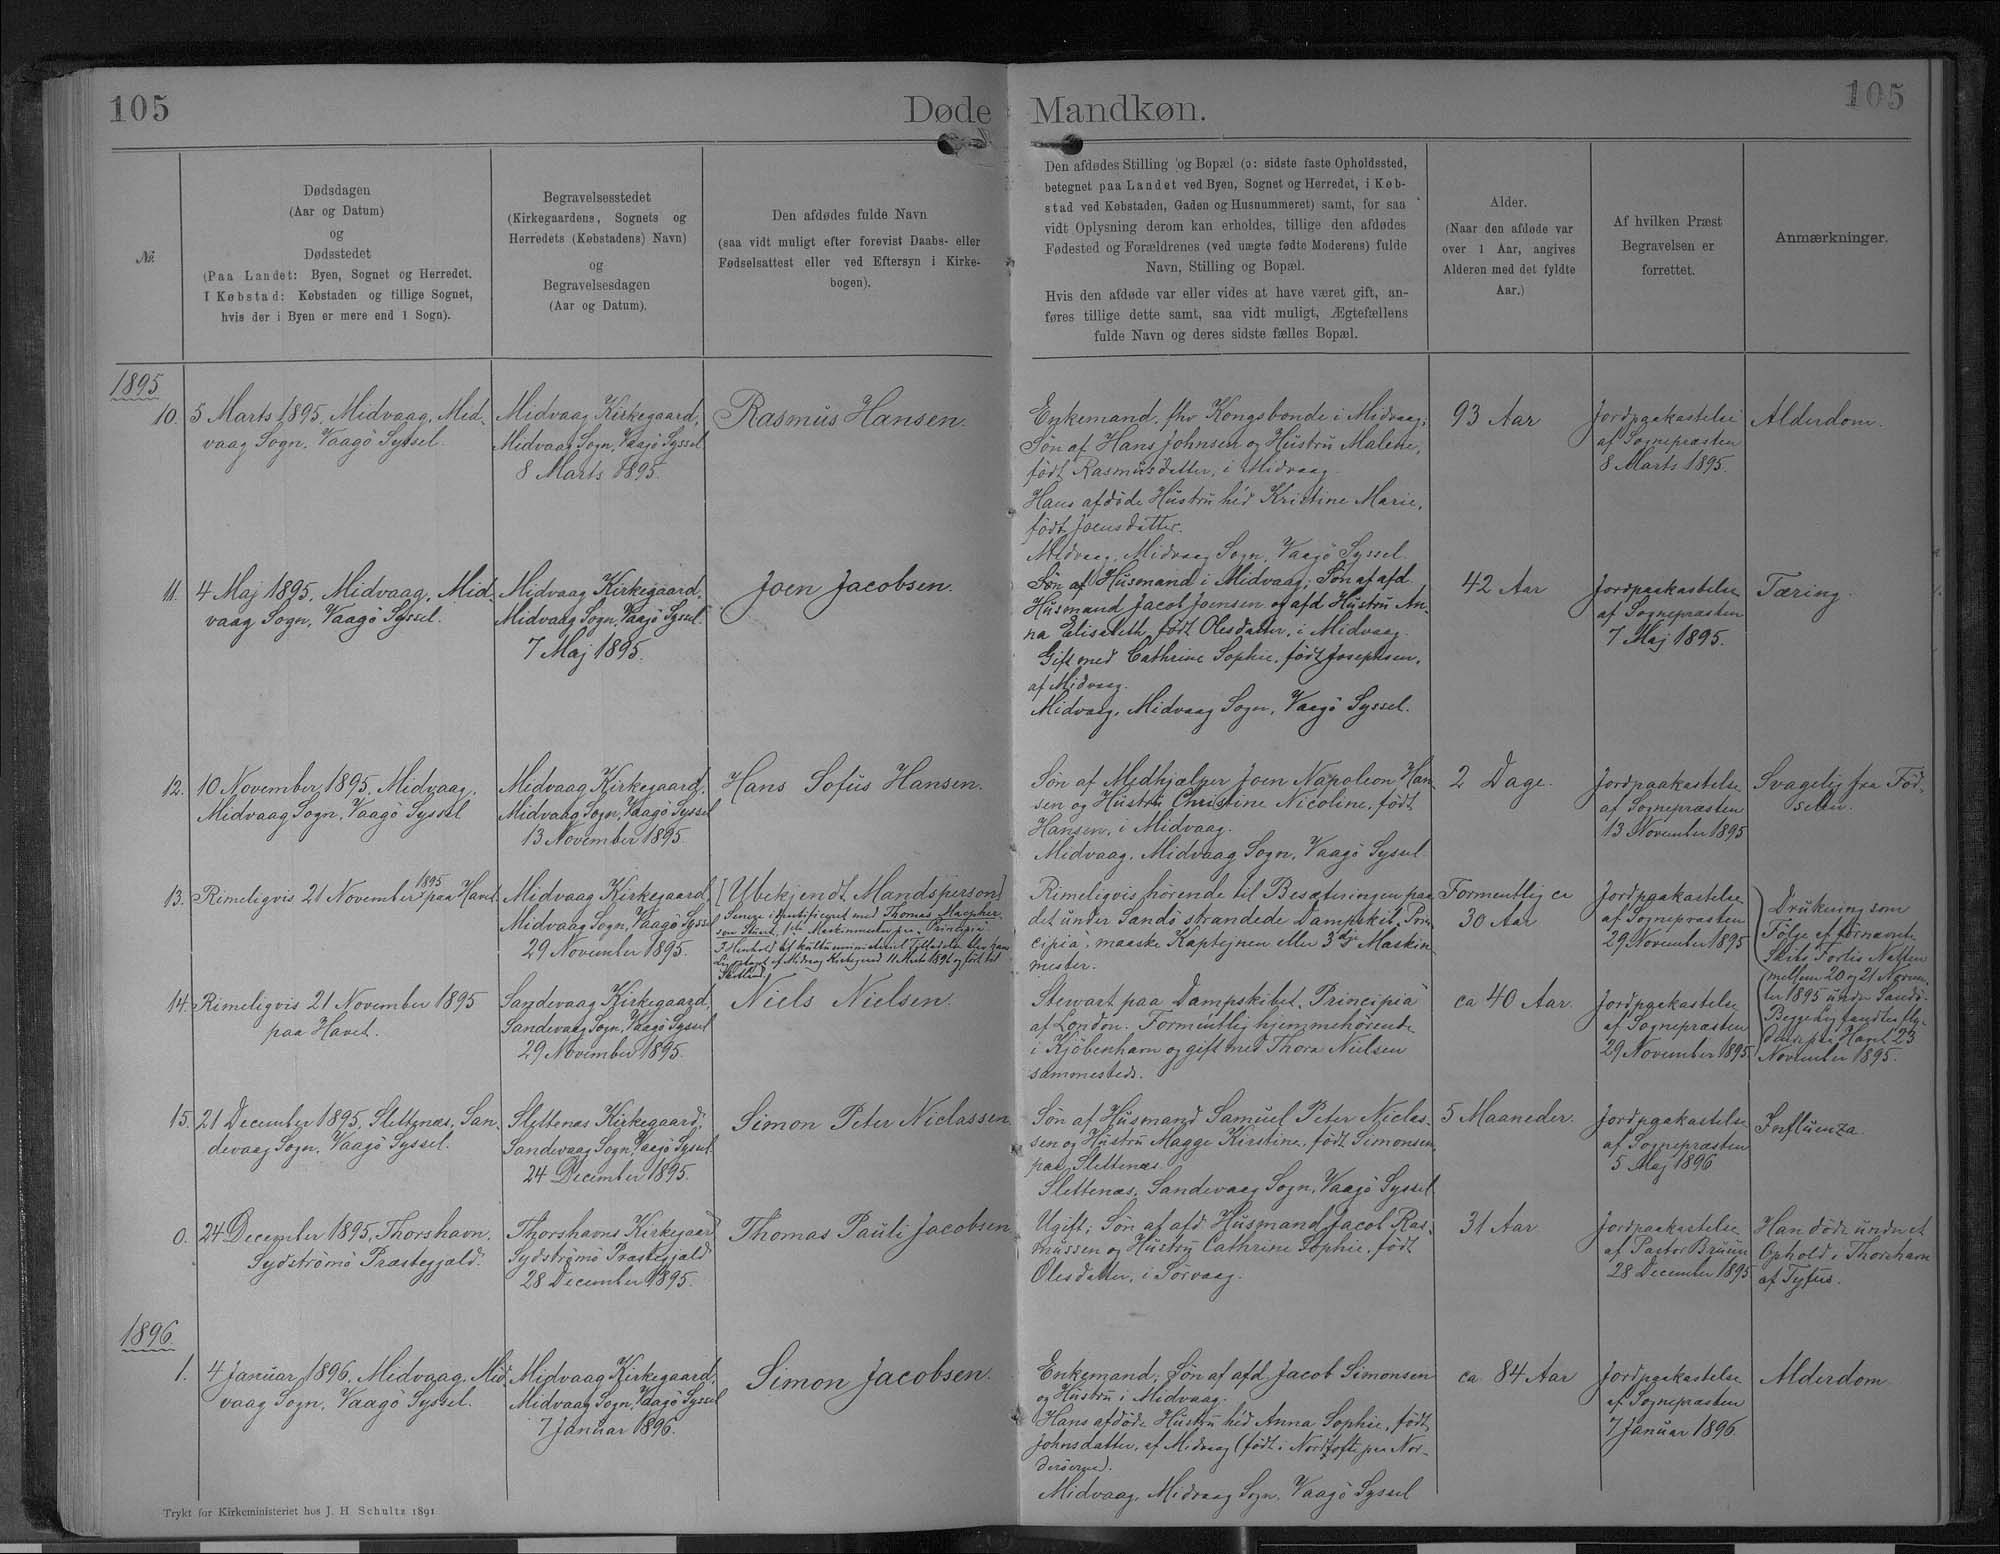 105
Døde Mandkøn.
105
No.
Dødsdagen
(Aar og Datum)
og
Dødsstedet
(Paa Landet: Byen, Sognet og Herredet.
I Købstad: Købstaden og tillige Sognet,
hvis der i Byen er mere end 1 Sogn).
Begravelsesstedet
(Kirkegaardens, Sognets og
Herredets (Købstadens) Navn)
og
Begravelsesdagen
(Aar og Datum).
Den afdødes fulde Navn
(saa vidt muligt efter forevist Daabs- eller
Fødselsattest eller ved Eftersyn i Kirke-
bogen).
Den afdødes Stilling og Bopæl (ɔ: sidste faste Opholdssted,
betegnet paa Landet ved Byen, Sognet og Herredet, i Køb-
stad ved Købstaden, Gaden og Husnummeret) samt, for saa
vidt Oplysning derom kan erholdes, tillige den afdødes
Fødested og Forældrenes (ved uægte fødte Moderens) fulde
Navn, Stilling og Bopæl.
Hvis den afdøde var eller vides at have været gift, an-
føres tillige dette samt, saa vidt muligt, Ægtefællens
fulde Navn og deres sidste fælles Bopæl.
Alder.
(Naar den afdøde var
over 1 Aar, angives
Alderen med det fyldte
Aar.)
Af hvilken Præst
Begravelsen er
forrettet.
Anmærkninger.
1895
10.
5 Marts 1895, Midvaag, Mid-
vaag Sogn, Vaagö Syssel.
Midvaag Kirkegaard,
Midvaag Sogn, Vaagö Syssel
8 Marts 1895.
Rasmus Hansen.
Enkemand, fhv Kongsbonde i Midvaag;
Søn af Hans Johnsen og Hustru Malene,
født Rasmusdatter, i Midvaag.
Hans afdöde Hustru hed Kristine Marie,
født Joensdatter.
Midvaag, Midvaag Sogn, Vaagö Syssel.
93 Aar
Jordpaakastelse
af Sognepræsten
8 Marts 1895.
Alderdom.
11.
4 Maj 1895, Midvaag, Mid-
vaag Sogn, Vaagö Syssel.
Midvaag Kirkegaard,
Midvaag Sogn, Vaagö Syssel.
7 Maj 1895.
Joen Jacobsen.
Søn af Husmand i Midvaag; Søn af afd
Husmand Jacob Joensen og afd Hustru An-
na Elisabeth, født Olesdatter, i Midvaag.
Gift med Cathrine Sophie, født Josephsen,
af Midvaag.
Midvaag, Midvaag Sogn, Vaagö Syssel.
42 Aar
Jordpaakastelse
af Sognepræsten
7 Maj 1895.
Tæring.
12.
10 November 1895, Midvaag,
Midvaag Sogn, Vaagö Syssel
Midvaag Kirkegaard,
Midvaag Sogn, Vaagö Syssel
13 November 1895.
Hans Sofus Hansen.
Søn af Medhjælper Joen Napoleon Han-
sen og Hustru Christine Nicoline, født
Hansen, i Midvaag.
Midvaag, Midvaag Sogn, Vaagö Syssel
2 Dage.
Jordpaakastelse
af Sognepræsten
13 November 1895
Svagelig fra Föd-
selen.
13.
Rimeligvis 21 November 1895 paa Havet.
Midvaag Kirkegaard,
Midvaag Sogn, Vaagö Syssel
29 November 1895.
[Ubekjendt Mandsperson]
Senere identificeret med Thomas Macpher-
son Stuart, 1ste Maskinmester paa "Principia".
I Henhold til Kultusministeriet Tilladelse blev hans
Lig optaget af Midvaag Kirkegaard 11 Marts 1896 og ført til
Skotland.
Rimeligvis hørende til Besætningen paa
det under Sandö strandede Dampskib "Prin-
cipia", maaske Kaptejnen eller 3die Maskin-
mester.
Formentlig ca
30 Aar
Jordpaakastelse
af Sognepræsten
29 November 1895
Drukning som
Følge af fornævnte
Skibs Forlis Natten
mellem 20 og 21 Novem-
ber 1895 under Sandö.
Begge Lig fandtes fly-
dende paa Havet 23
November 1895.
14.
Rimeligvis 21 November 1895
paa Havet.
Sandevaag Kirkegaard,
Sandevaag Sogn, Vaagö Syssel
29 November 1895.
Niels Nielsen.
Stewart paa Dampskibet "Principia"
af London. Formentlig hjemmehörende
i Kjöbenhavn og gift med Thora Nielsen
sammesteds.
ca 40 Aar
Jordpaakastelse
af Sognepræsten
29 November 1895
15.
21 December 1895, Slettenæs, San-
devaag Sogn, Vaagö Syssel.
Slettenæs Kirkegaard,
Sandevaag Sogn, Vaagö Syssel
24 December 1895.
Simon Peter Niclassen
Søn af Husmand Samuel Peter Niclas-
sen og Hustru Magge Kirstine, født Simonsen,
paa Slettenæs.
Slettenæs, Sandevaag Sogn, Vaagö Syssel
5 Maaneder.
Jordpaakastelse
af Sognepræsten
5 Maj 1896
Influenza.
0.
24 December 1895, Thorshavn,
Sydströmö Præstegjæld.
Thorshavns Kirkegaard
Sydströmö Præstegjæld
28 December 1895.
Thomas Pauli Jacobsen
Ugift; Søn af afd Husmand Jacob Ras-
mussen og Hustru Cathrine Sophie, født
Olesdatter, i Sörvaag.
31 Aar
Jordpaakastelse
af Pastor Bruun
28 December 1895
Han døde under et
Ophold i Thorshavn
af Tyfus.
1896
1.
4 Januar 1896, Midvaag, Mid-
vaag Sogn, Vaagö Syssel.
Midvaag Kirkegaard,
Midvaag Sogn, Vaagö Syssel
7 Januar 1896.
Simon Jacobsen.
Enkemand; Søn af afd Jacob Simonsen
og Hustru i Midvaag.
Hans afdöde Hustru hed Anna Sophie, født
Johnsdatter, af Midvaag (født i Nordtofte paa Nor-
deröerne).
Midvaag, Midvaag Sogn, Vaagö Syssel
ca 84 Aar
Jordpaakastelse
af Sognepræsten
7 Januar 1896
Alderdom.
Trykt for Kirkeministeriet hos J. H Schultz 1891